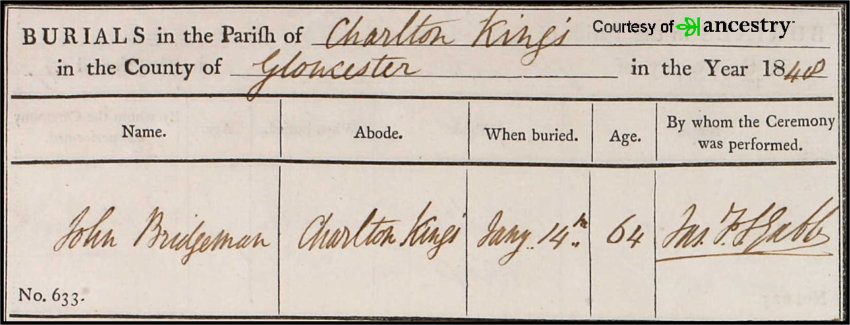 Courtesy of ancestry
BURIALS in the Parish of Charlton King's
in the County of Gloucester in the Year 1848
Name. Abode. When buried. Age. By whom the Ceremony was performed.
John Bridgeman Charlton King's Jany. 14th 64 Jas. F. S. Gabb
No. 633.